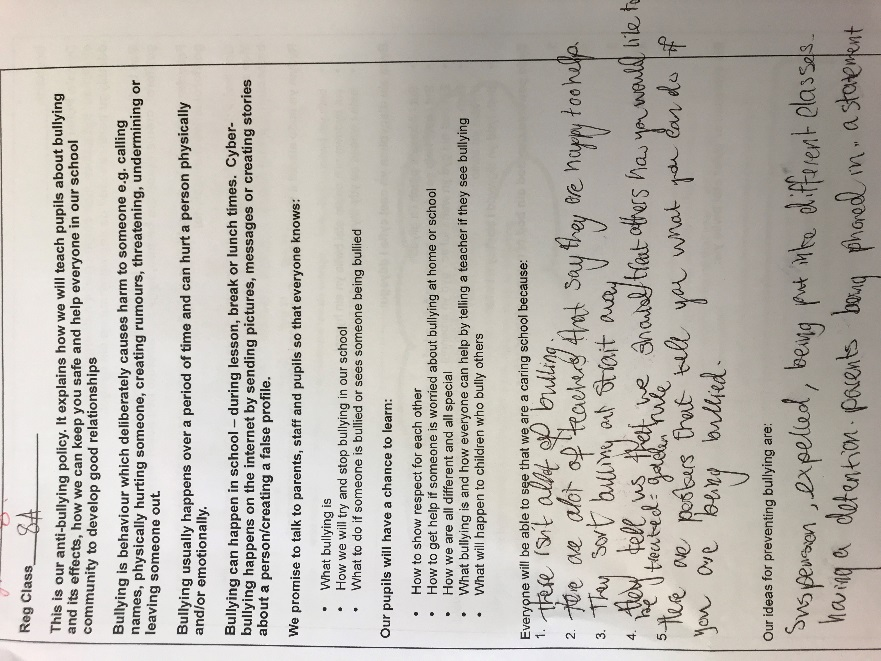 Reg Class 8A
This is our anti-bullying policy. It explains how we will teach pupils about bullying
and its effects, how we can keep you safe and help everyone in our school
community to develop good relationships
Bullying is behaviour which deliberately causes harm to someone e.g. calling
names, physically hurting someone, creating rumours, threatening, undermining or
leaving someone out.
Bullying usually happens over a period of time and can hurt a person physically
and/or emotionally.
Bullying can happen in school – during lesson, break or lunch times. Cyber-
bullying happens on the internet by sending pictures, messages or creating stories
about a person/creating a false profile.
We promise to talk to parents, staff and pupils so that everyone knows:
• What bullying is
• How we will try and stop bullying in our school
• What to do if someone is bullied or sees someone being bullied
Our pupils will have a chance to learn:
• How to show respect for each other
• How to get help if someone is worried about bullying at home or school
• How we are all different and all special
• What bullying is and how everyone can help by telling a teacher if they see bullying
• What will happen to children who bully others
Everyone will be able to see that we are a caring school because:
1. there isn't alot of bulling.
2. there are alot of teachers that say they are happy too help.
3. They sort bulling out strait away
4. they tell us that we should treat others how you would like to
be treated = golden rule
5. there are posters that tell you what you can do if
you are being bullied.
Our ideas for preventing bullying are:
Suspension, expelled, being put into different classes.
having a detention. parents being phoned in. a statement